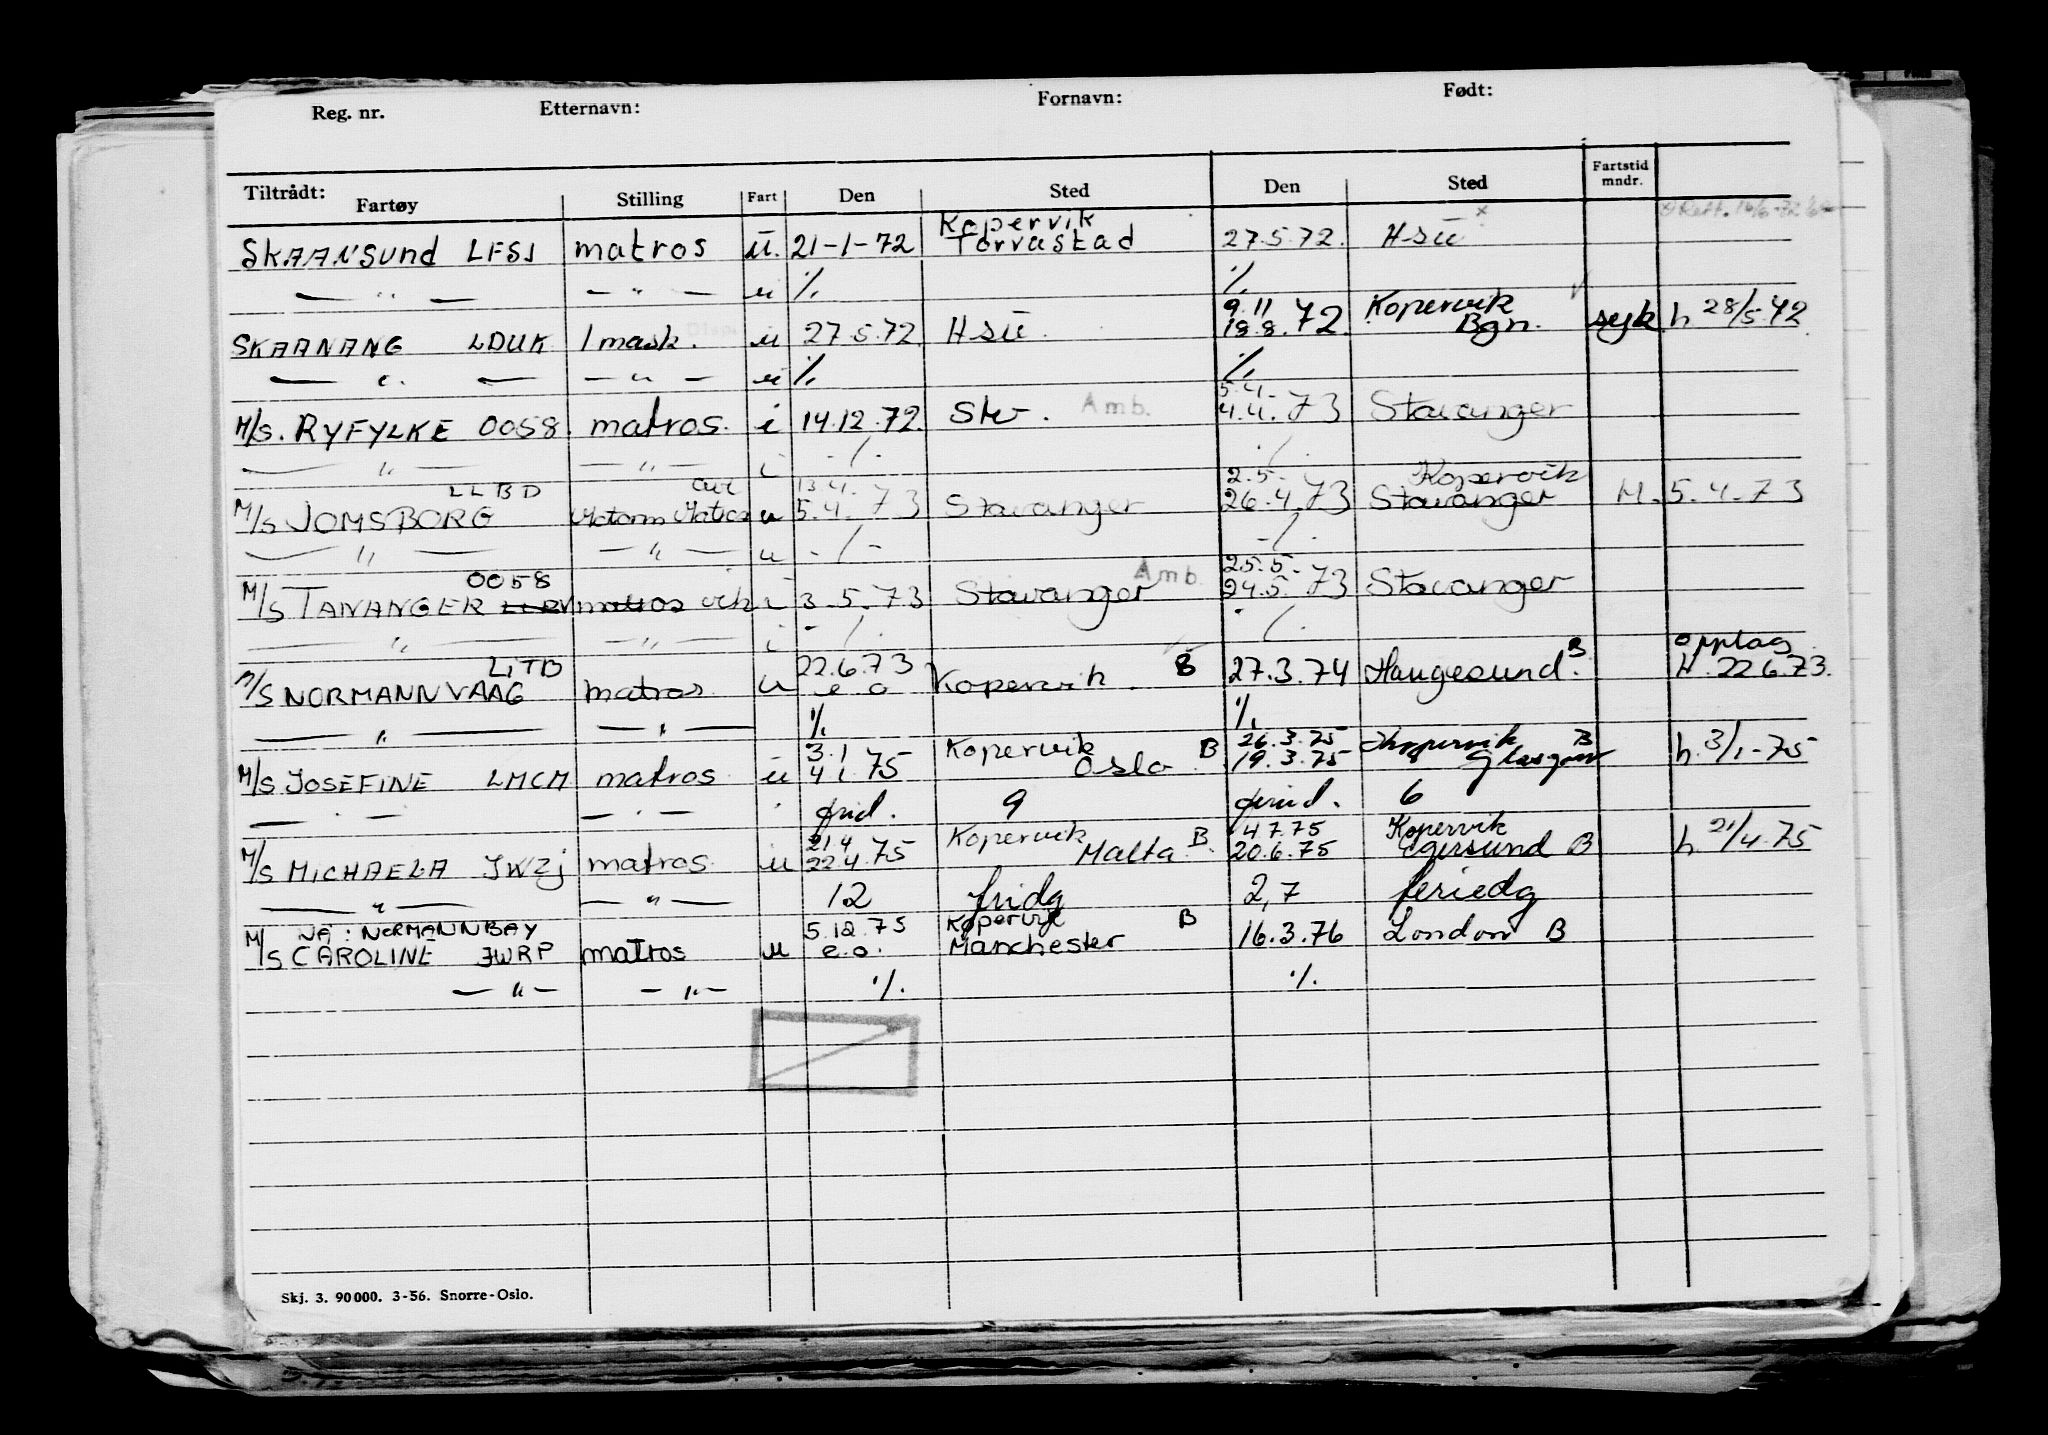 Reg. nr. Etternavn: Fornavn: Født:
Tiltrådt: Fartøy Stilling Fart Den Sted Den Sted Fartstid mndr.
Kopervik
SKAANSUND LFSJ matros u. 21-1-72 Torvastad 27.5.72. Hsu x
— " — — " — u ·/. ·/.
9.11 Kopervik
SKAANANG LDUK 1 mask. u 27.5.72 Hsu. 18.8.72. Bgn. syk h 28/5.72
— " — — " — u ·/. ·/.
5.4.
M/S. RYFYLKE 0058. matros. i 14.12.72. Stv. Amb. 4.4.73 Stavanger
— " — — " — i ·/. ·/.
LLBD 13.4. 2.5. Kopervik
M/S JOMSBORG u 5.4.73 Stavanger 26.4.73 Stavanger H. 5.4.73
— " — — " — u -/- -/-
0058 Amb. 25.5.
M/S TANANGER matros i 3.5.73 Stavanger 24.5.73 Stavanger
— " — — " — i ·/. ·/.
LITB 22.6.73 opplag
M/S NORMANNVAAG matros u e o Kopervik. B 27.3.74 Haugesund. B H. 22.6.73.
— " — — " — ·/. ·/.
3.1 Kopervik 26.3.75 Kopervik B
M/S JOSEFINE LMCM matros u 4.1.75 Oslo. B 19.3.75 Glasgow h. 3/1-75
— " — — " — frid. 9 ferid. 6
21.4 Kopervik 4.7.75 Kopervik
M/S MICHAELA JWZJ matros u 22.4.75 Malta. B. 20.6.75 Egersund B h 21/4.75
— " — — " — 12 fridg 2,7 feriedg
NA: NORMANNBAY 5.12.75 Kopervik B
M/S CAROLINE JWRP matros u e.o. Manchester 16.3.76 London B
— " — — " — ·/. ·/.
Skj. 3. 90 000. 3-56. Snorre-Oslo.